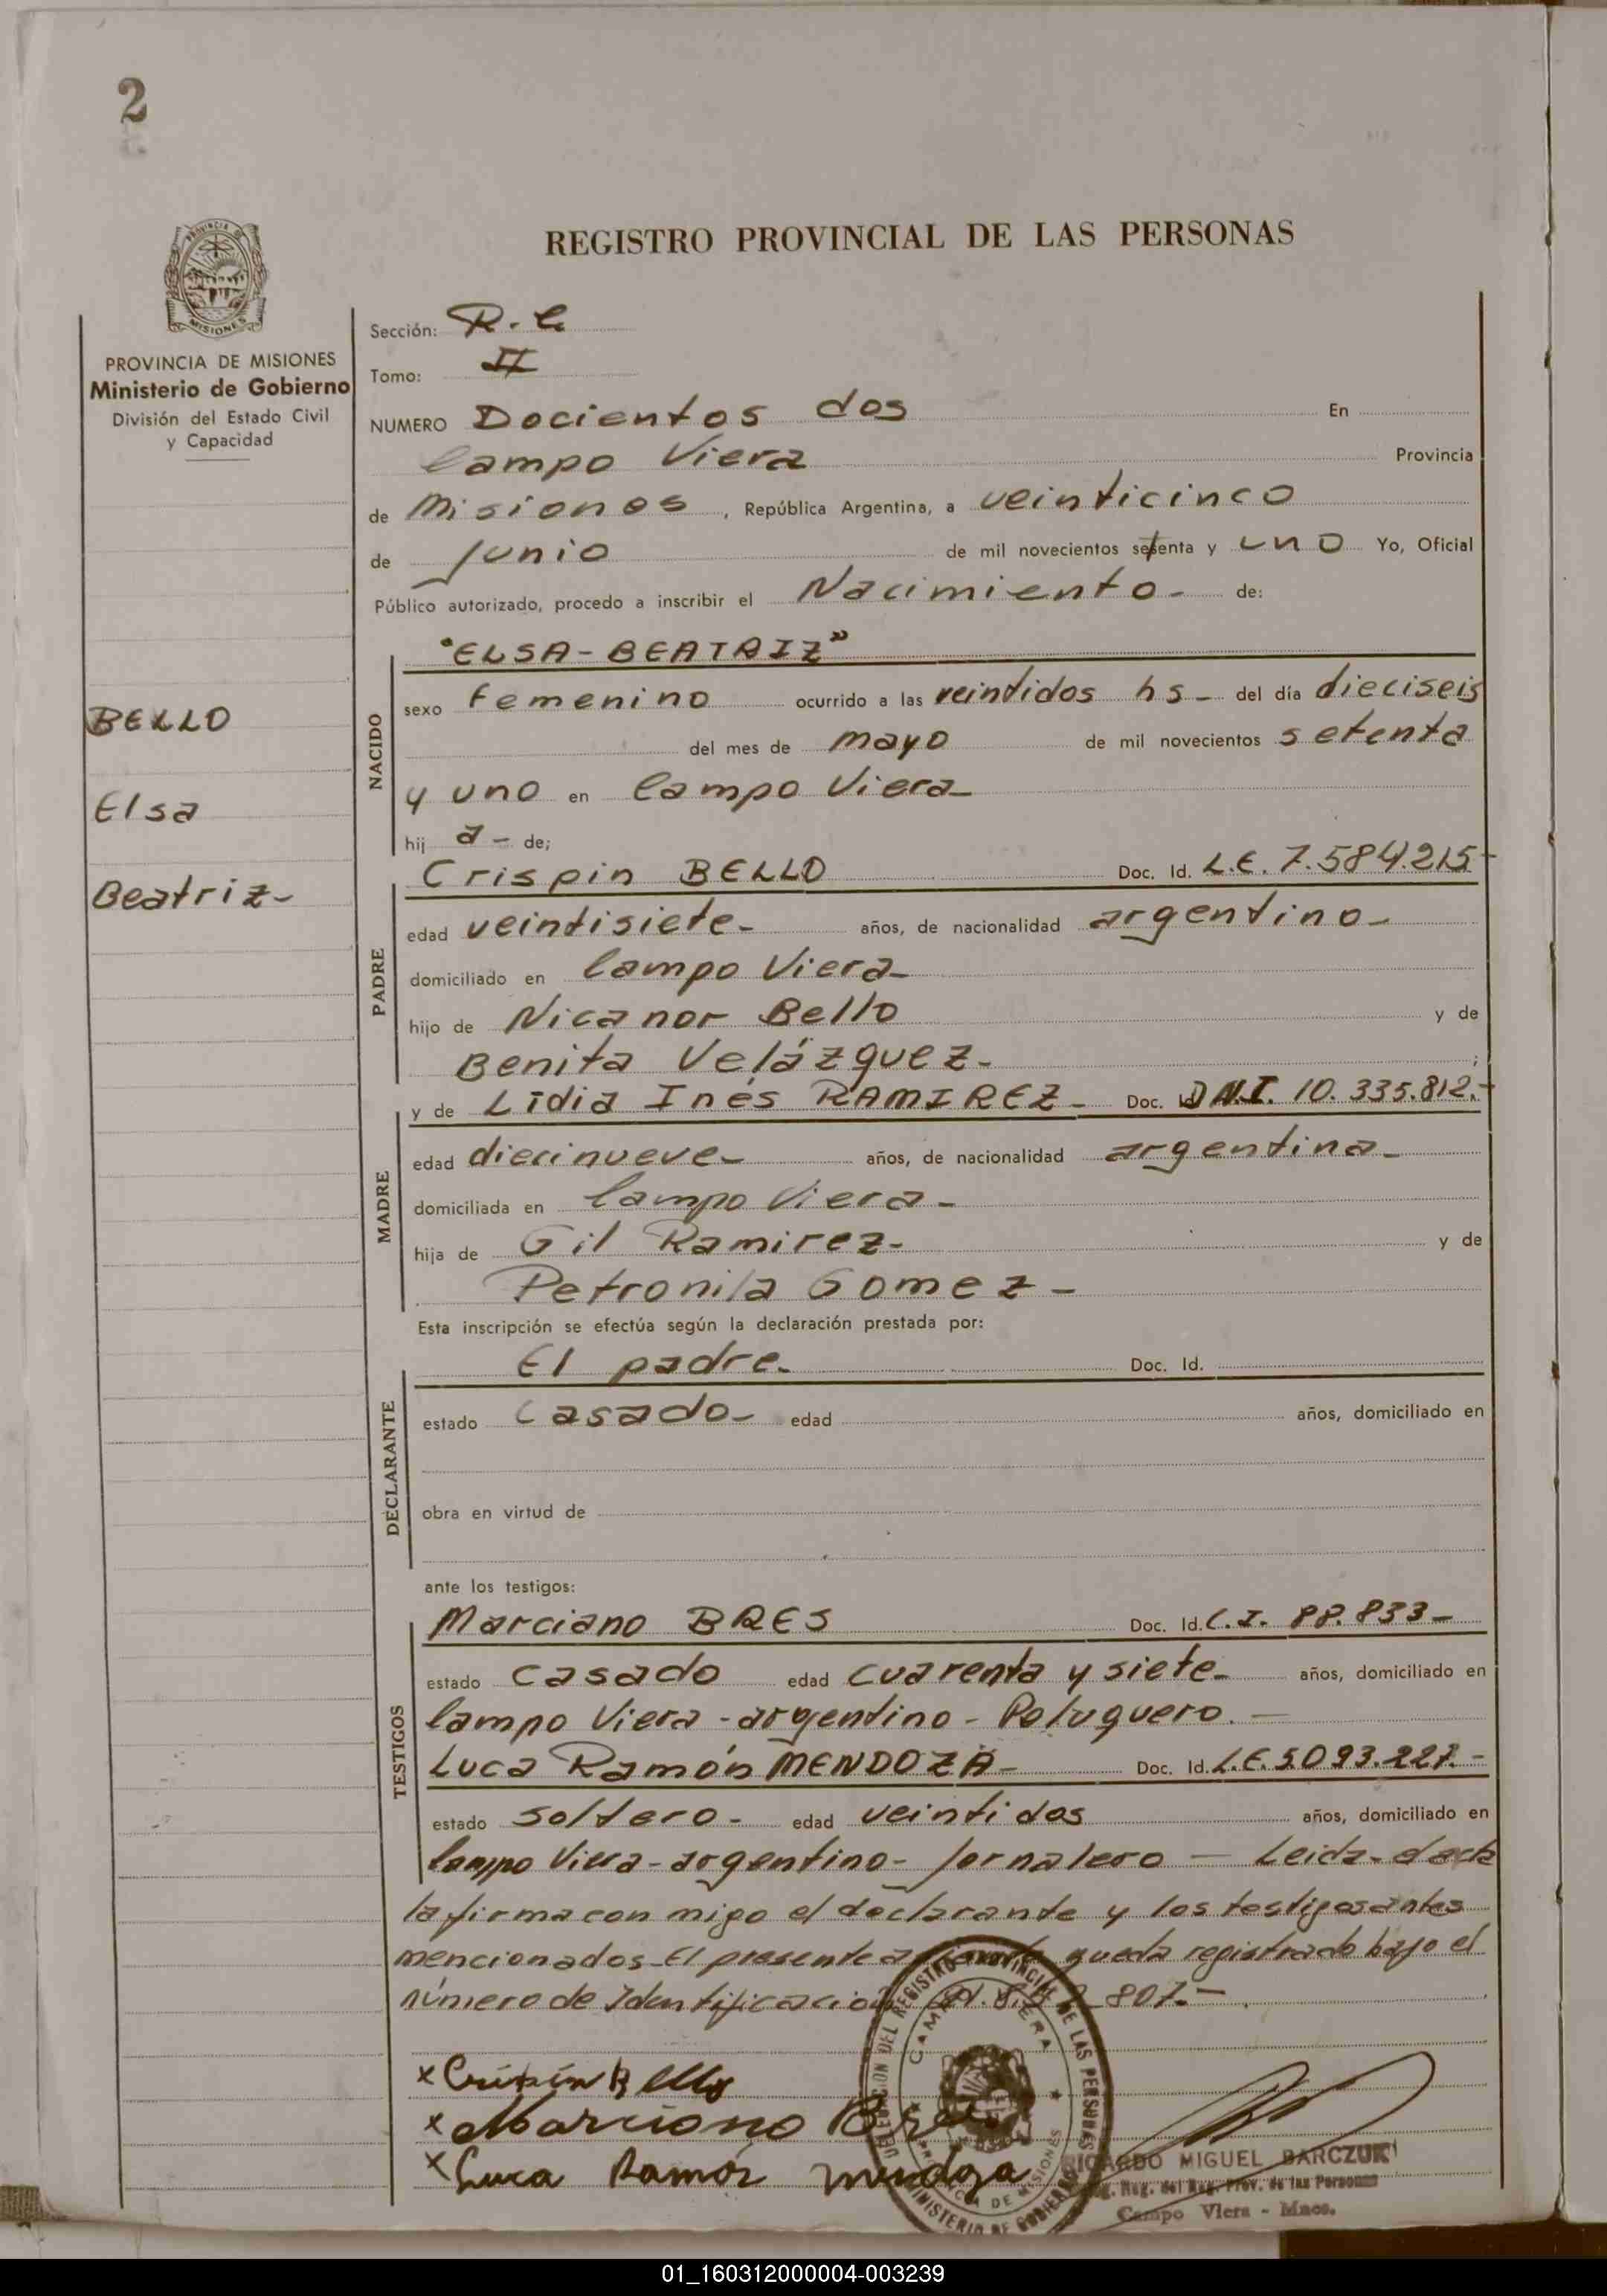 2
REGISTRO PROVINCIAL DE LAS PERSONAS
PROVINCIA DE MISIONES
PROVINCIA DE MISIONES
Ministerio de Gobierno
División del Estado Civil
y Capacidad
BELLO
Elsa
Beatriz-
Sección: R.C
Tomo: II
NUMERO Docientos dos En
Campo Viera Provincia
de Misiones, República Argentina, a veinticinco
de Junio de mil novecientos setenta y uno Yo, Oficial
Público autorizado, procedo a inscribir el Nacimiento- de:
"ELSA-BEATRIZ"
NACIDO
sexo femenino ocurrido a las veintidos hs- del día dieciseis
del mes de mayo de mil novecientos setenta
y uno en Campo Viera-
hij a- de;
Crispin BELLO Doc. Id. L.E. 7.584.215-
PADRE
edad veintisiete- años, de nacionalidad argentino-
domiciliado en Campo Viera-
hijo de Nicanor Bello y de
Benita Velázquez- ;
y de Lidia Inés RAMIREZ- Doc. Id D.N.I. 10.335.812.-
MADRE
edad diecinueve- años, de nacionalidad argentina-
domiciliada en Campo Viera-
hija de Gil Ramirez- y de
Petronila Gomez-
Esta inscripción se efectúa según la declaración prestada por:
El padre- Doc. Id.
DECLARANTE
estado Casado- edad años, domiciliado en
obra en virtud de
ante los testigos:
Marciano BRES Doc. Id. C.I. 88.833-
TESTIGOS
estado casado edad cuarenta y siete- años, domiciliado en
Campo Viera-argentino-Peluquero.-
Luca Ramón MENDOZA- Doc. Id. L.E. 5.093.227.-
estado soltero- edad veintidos años, domiciliado en
Campo Viera-argentino-Jornalero- Leida el acta
la firma con migo el declarante y los testigos antes
mencionados-El presente queda registrado bajo el
número de Identificación 807.-
x Crispín Bello
x Marciano Bres
x Luca Ramón Mendoza
DELEGACION DEL REGISTRO PROVINCIAL DE LAS PERSONAS
CAMPO VIERA
PROVINCIA DE MISIONES
MINISTERIO DE GOBIERNO
RICARDO MIGUEL BARCZUK
Reg. del Reg. Prov. de las Personas
Campo Viera - Mnes.
01_160312000004-003239